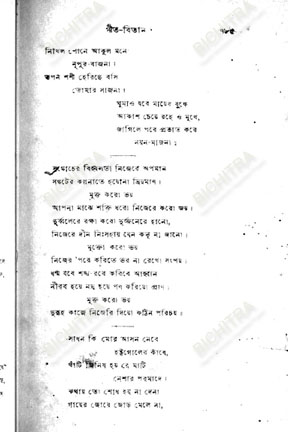 গীত-বিতান
নিখিল শোনে আকুল মনে
নূপুর-বাজনা।
স্বপন শশী হেরিছে বসি
তোমার সাজনা।
ঘুমাও যবে মায়ের বুকে
আকাশ চেয়ে রহে ও মুখে,
জাগিলে পরে প্রভাত করে
নয়ন-মাজনা।
সঙ্কোচের বিহ্বলতা নিজেরে অপমান
সঙ্কটের কল্পনাতে হোয়োনা ম্রিয়মাণ।
মুক্ত করো ভয়
আপনা মাঝে শক্তি ধরো নিজেরে করো জয়।
দুর্ব্বলেরে রক্ষা করো দুর্জনেরে হানো,
নিজেরে দীন নিঃসহায় যেন কভু না জানো।
মুক্ত করো ভয়
নিজের 'পরে করিতে ভর না রেখো সংশয়।
ধর্ম্ম যবে শঙ্খ-রবে করিবে আহ্বান
নীরব হয়ে নম্র হয়ে পণ করিয়ো প্রাণ।
মুক্ত করো ভয়
দুরূহ কাজে নিজেরি দিয়ো কঠিন পরিচয়।
সাধন কি মোর আসন নেবে
হট্টগোলের কাঁধে,
খাঁটি জিনিষ হয় রে মাটি
নেশার পরমাদে।
কথায় তো শোধ হয় না দেনা
গায়ের জোরে জোড় মেলে না,
BICHITRA